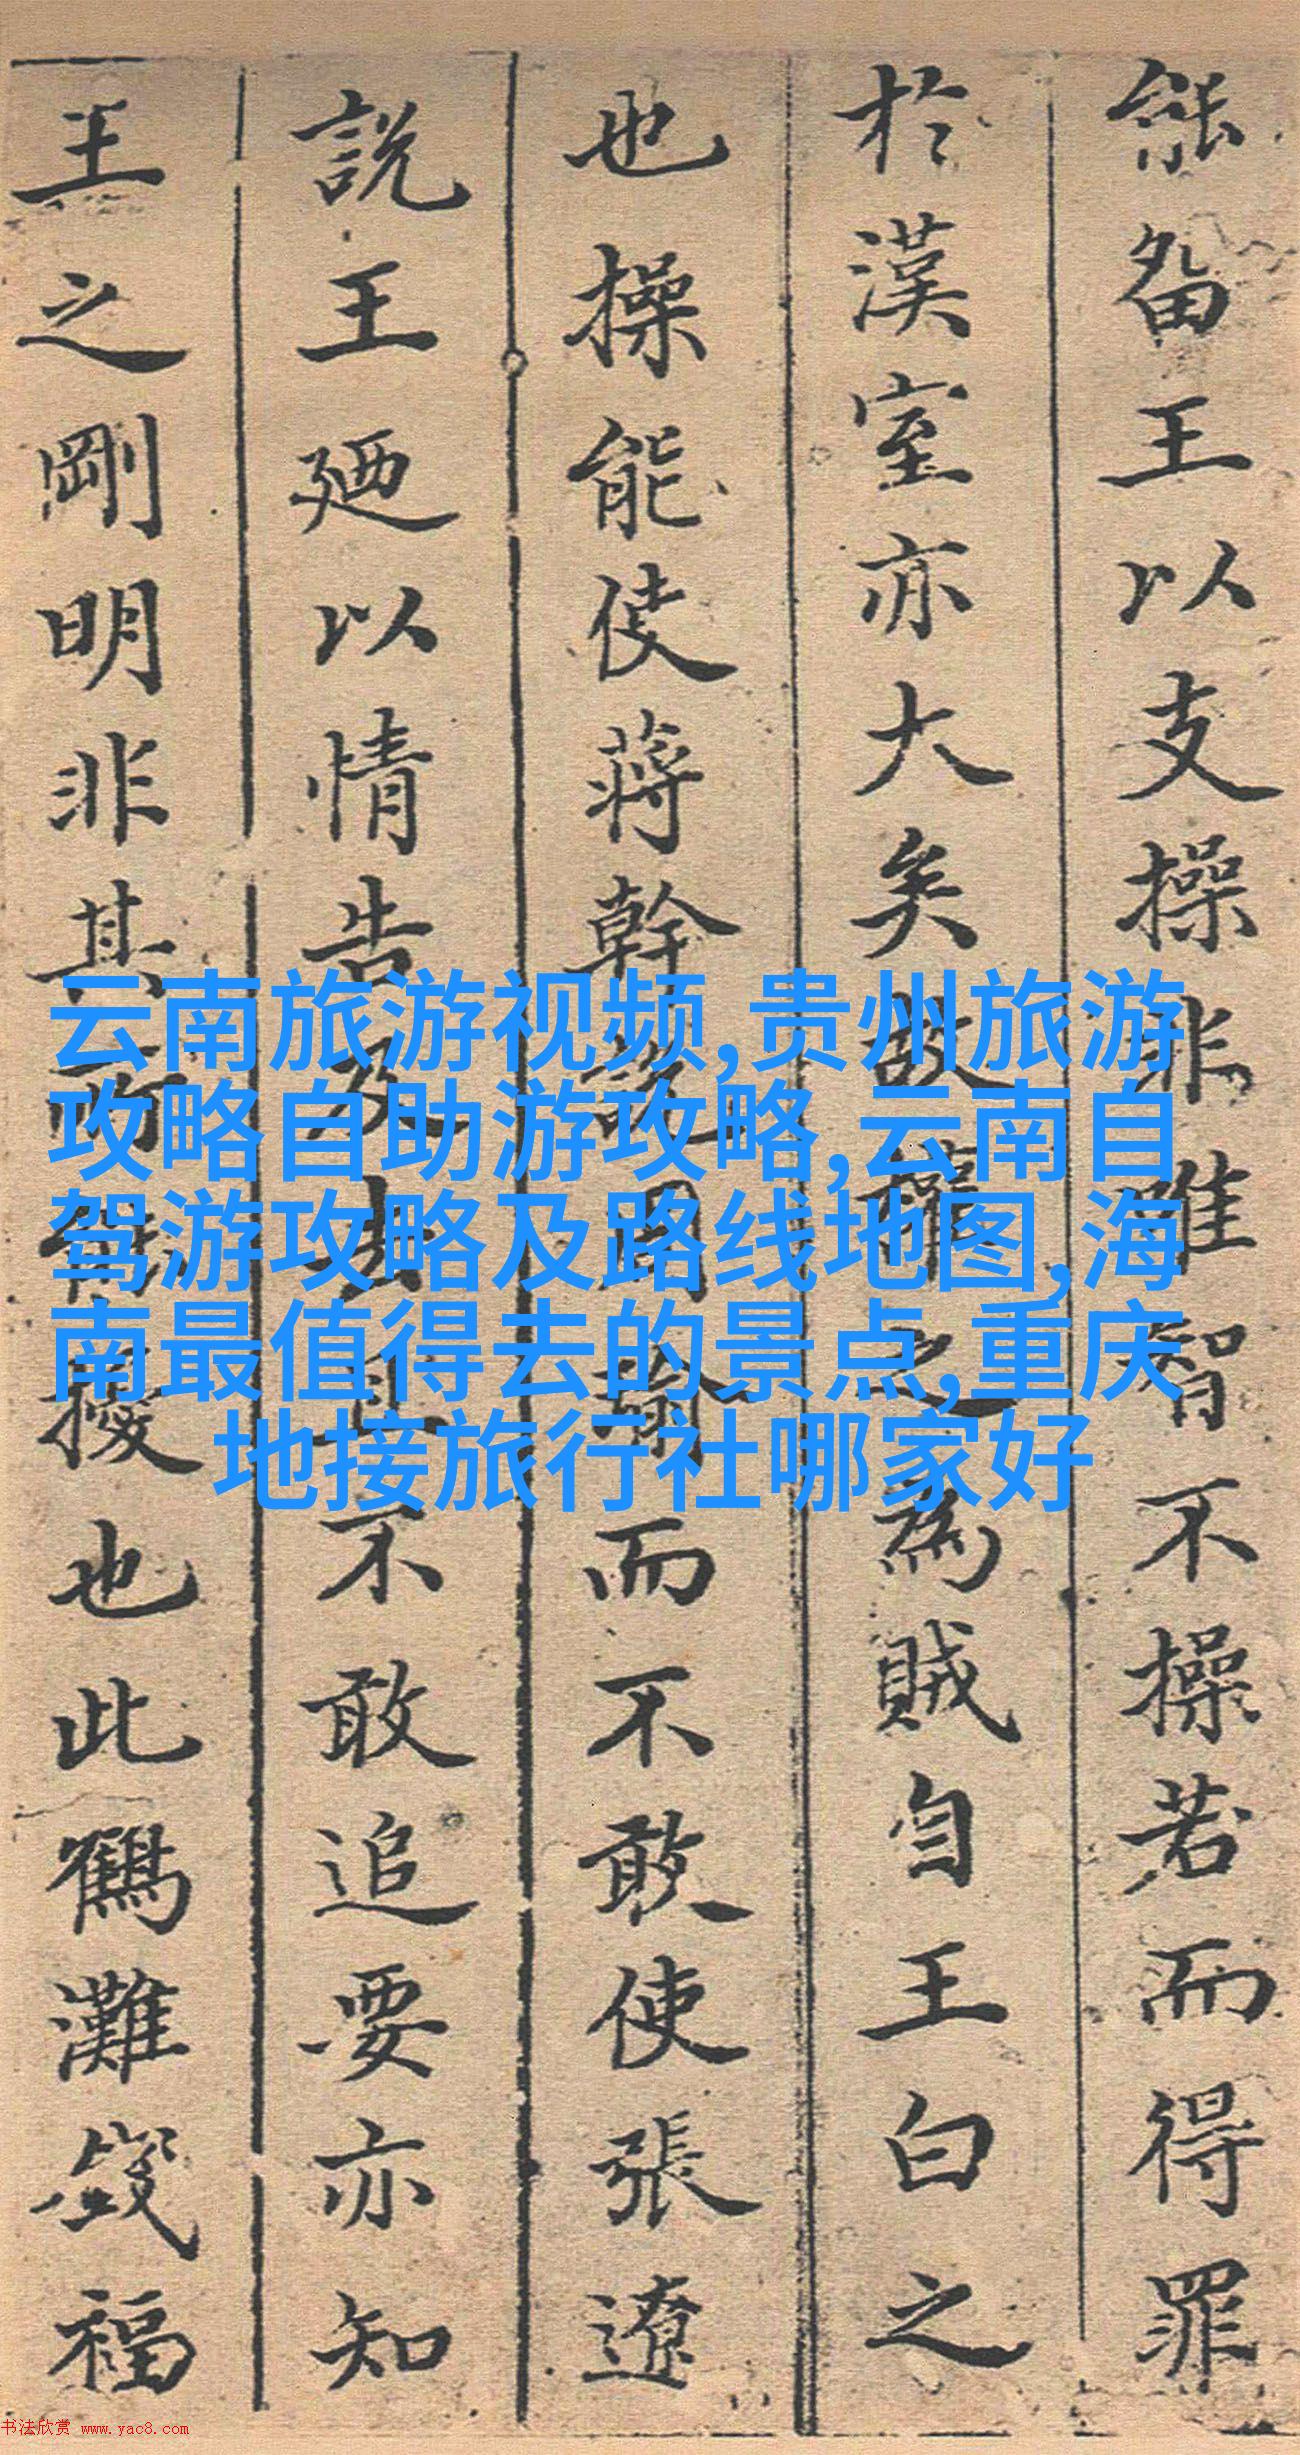 能留王以支操非唯智不操若而得罪
於漢室亦大矣故之為賊自王白之
也操能使蔣幹說周瑜而不敢使張遼
說王廼以情告及去且不敢追要亦知
王之剛明非其所能擾也此鶴灘福
云南旅游视频,贵州旅游
攻略自助游攻略,云南自
驾游攻略及路线地图,海
南最值得去的景点,重庆
地接旅行社哪家好
书法欣赏 www.yac8.com